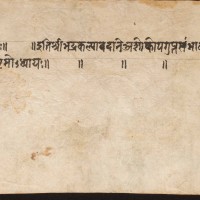 ः॥ ॥इतिश्रीभद्रकल्पावदानेअशोकोपगुप्तसंभा
मोऽध्यायः॥ ॥ ॥ ॥ ॥